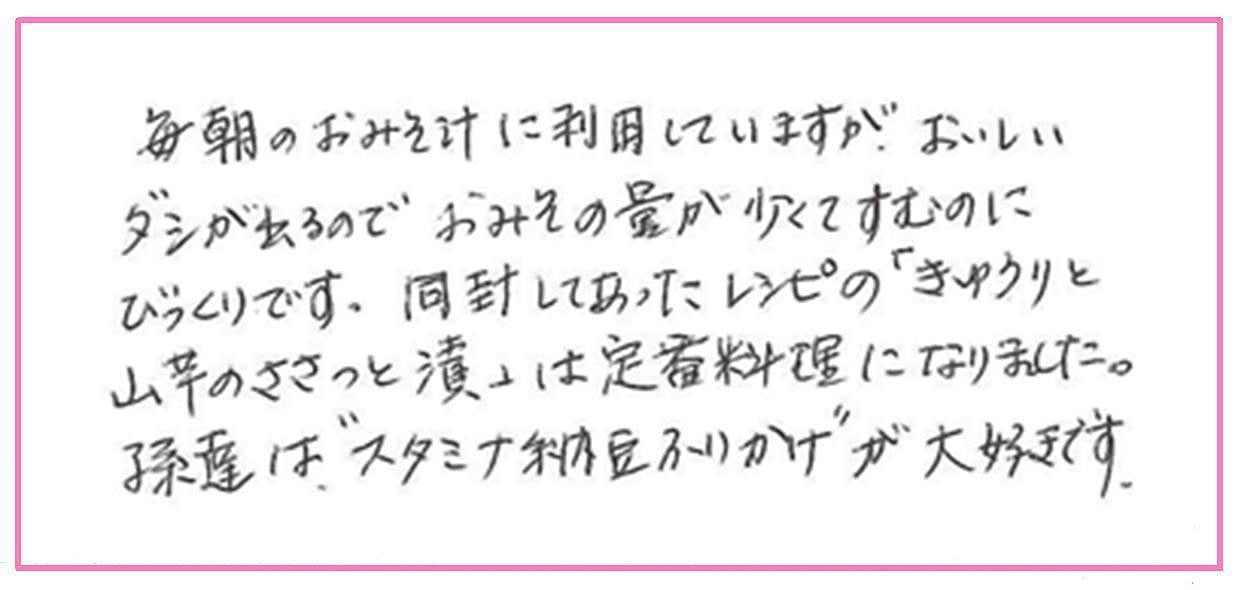 毎朝のおみそ汁に利用していますが、おいしい
ダシが出るのでおみその量が少くてすむのに
びっくりです。同封してあったレシピの「きゅうりと
山芋のささっと漬」は定番料理になりました。
孫達は、"スタミナ納豆ふりかけ"が大好きです。